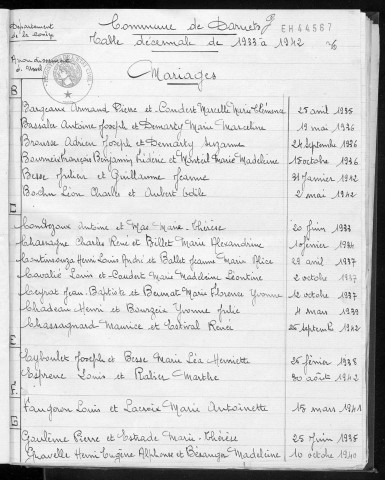 Département
de la Corrèze
Commune de Darnets
EH44567
Table décennale de 1933 à 1942
Arrondissement
d'Ussel
Mariages
B
Bargeaux Armand Pierre et Coudert Marcelle Marie Clémence 25 avril 1935
Bassaler Antoine Joseph et Demarty Marie Marceline 19 mai 1936
Brousse Adrien Joseph et Demarty Suzanne 24 septembre 1936
Benjamin Frédéric et Monteil Marie Madeleine 15 octobre 1936
Besse Julien et Guillaume Jeanne 31 janvier 1942
Bochu Léon Charles et Aubert Odile 2 mai 1942
C
Antoine et Mas Marie-Thérèse 20 juin 1933
Chassagne Charles René et Billet Marie Alexandrine 10 février 1934
Continsouza Henri Louis André et Ballet Jeanne Marie Alice 29 avril 1937
Cavalié Louis et Coudert Marie Madeleine Léontine 2 octobre 1937
Ceyrat Jean-Baptiste et Marie Florence Yvonne 12 octobre 1937
Chadeau Henri et Bourgeix Yvonne Julie 4 mars 1939
Chassagnard Maurice et Estival Renée 26 septembre 1942
E
Eyboulet Joseph et Besse Marie Léa Henriette 26 février 1938
Louis et Marthe 30 août 1942
F
Faugeron Louis et Lacroix Marie Antoinette 15 mars 1941
G
Gaulème Pierre et Estrade Marie-Thérèse 25 juin 1935
Gravelle Henri Eugène Alphonse et Bésanger Madeleine 10 octobre 1940